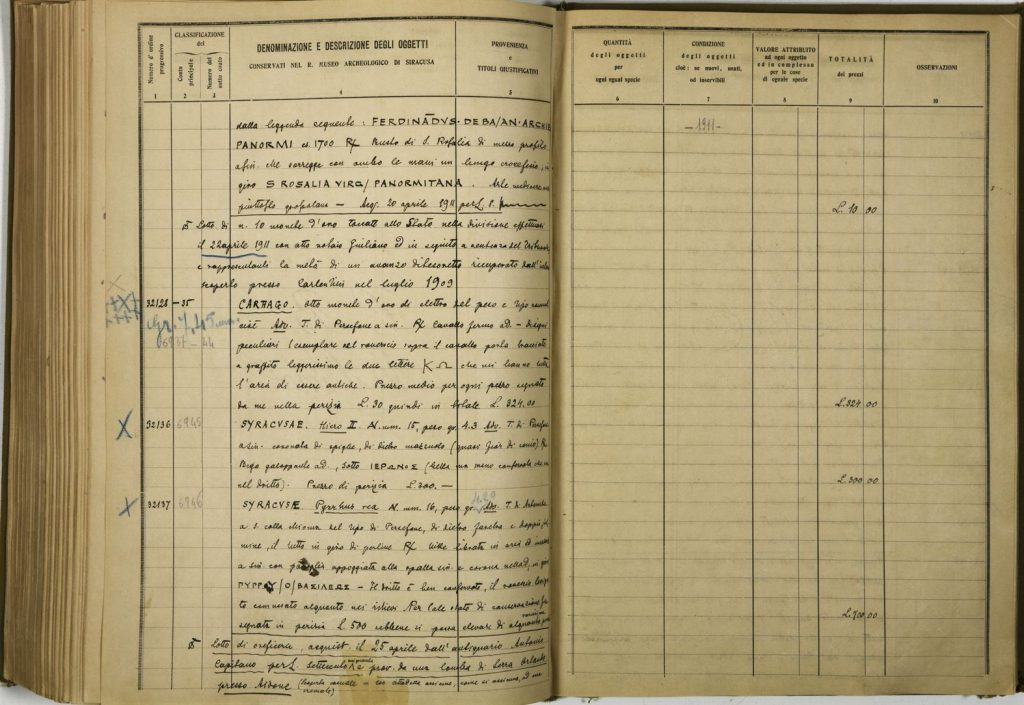 Numero d'ordine progressivo
CLASSIFICAZIONE
del
Conto principale
Numero del sotto conto
DENOMINAZIONE E DESCRIZIONE DEGLI OGGETTI
CONSERVATI NEL R. MUSEO ARCHEOLOGICO DI SIRACUSA
PROVENIENZA
e
TITOLI GIUSTIFICATIVI
1 2 3 4 5
dalla leggenda seguente: FERDINĀDVS · DE BA/AN · ARCHIE
PANORMI es. 1700 Rx Busto di S. Rosalia di mezzo profilo
a sin. che sorregge con ambo le mani un lungo crocefisso, in
giro S ROSALIA VIRG/ PANORMITANA. Arte mediocre
piuttosto — Acq. 20 aprile 1911 per L.
Lotto di n. 10 monete d'oro toccate allo Stato nella divisione effettuata
il 22 aprile 1911 con atto notaio Giuliano ed in seguito a sentenza del Tribunale
e rappresentanti la metà di un avanzo di tesoretto recuperato
scoperto presso Carlentini nel luglio 1909
32128 — 35
CARTAGO. Otto monete d'oro di elettro del peso e tipo
cioè Adv. T. di Persefone a sin. Rx Cavallo fermo a d. —
gr. 7,45
6937 — 44
peculieri (esemplare nel rovescio sopra il cavallo porta tracciate
a graffito leggerissimo le due lettere Κ Ω che mi hanno tutta
l'aria di essere antiche. Prezzo medio per ogni pezzo segnato
da me nella perizia L. 30 quindi in totale L. 324.00
32136 6945
SYRACVSAE. Hiero II N. num. 15, peso gr. 4.3 Adv. T. di Persefone
a sin. coronata di spighe, di dietro
Biga galoppante a d., sotto ΙΕΡΩΝΟΣ (bella ma meno conservata che
nel dritto). Prezzo di perizia L. 300. —
32137 6946
SYRACVSÆ Pyrrhus rex N. num. 16, peso gr. 4.20 Adv. T. di Artemide
a s. colla chioma del tipo di Persefone, di dietro faretra e doppio
mine, il tutto in giro di perline Rx Nike librata in aria ed
a sin con appoggiata alla spalla sin. e corona nella d., in giro
ΠΥΡΡΟΥ/Ο/ΒΑΣΙΛΕΩΣ — Il dritto è ben conservato, il rovescio
to consumato alquanto nei Per tale stato di conservazione fu
segnata in perizia L. 500 sebbene si possa elevare di alquanto
Lotto di oreficerie, acquist. il 25 aprile dall'antiquario Antonio
Capitano per L. settecento prov. da una tomba di Serra Orlando
presso Aidone
QUANTITÀ
degli oggetti
per
ogni egual specie
CONDIZIONE
degli oggetti
cioè: se nuovi, usati,
od inservibili
VALORE ATTRIBUITO
ad ogni oggetto
ed in complesso
per le cose
di eguale specie
TOTALITÀ
dei prezzi
OSSERVAZIONI
6 7 8 9 10
— 1911 —
L. 10 00
L. 324 00
L. 300 00
L. 700 00